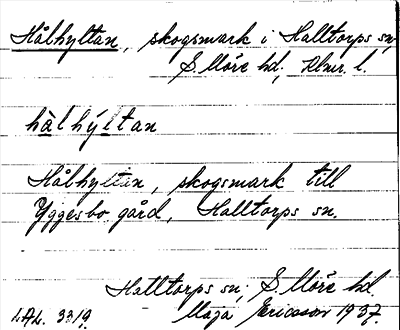 Hålhyltan, skogsmark i Halltorps sn,
S. Möre hd, Klmr. l.
hàlhýltan
Hålhyltan, skogsmark till
Yggesbo gård, Halltorps sn.
Halltorps sn, S. Möre hd.
L.A.L. 3319. Maja Ericsson 1937.